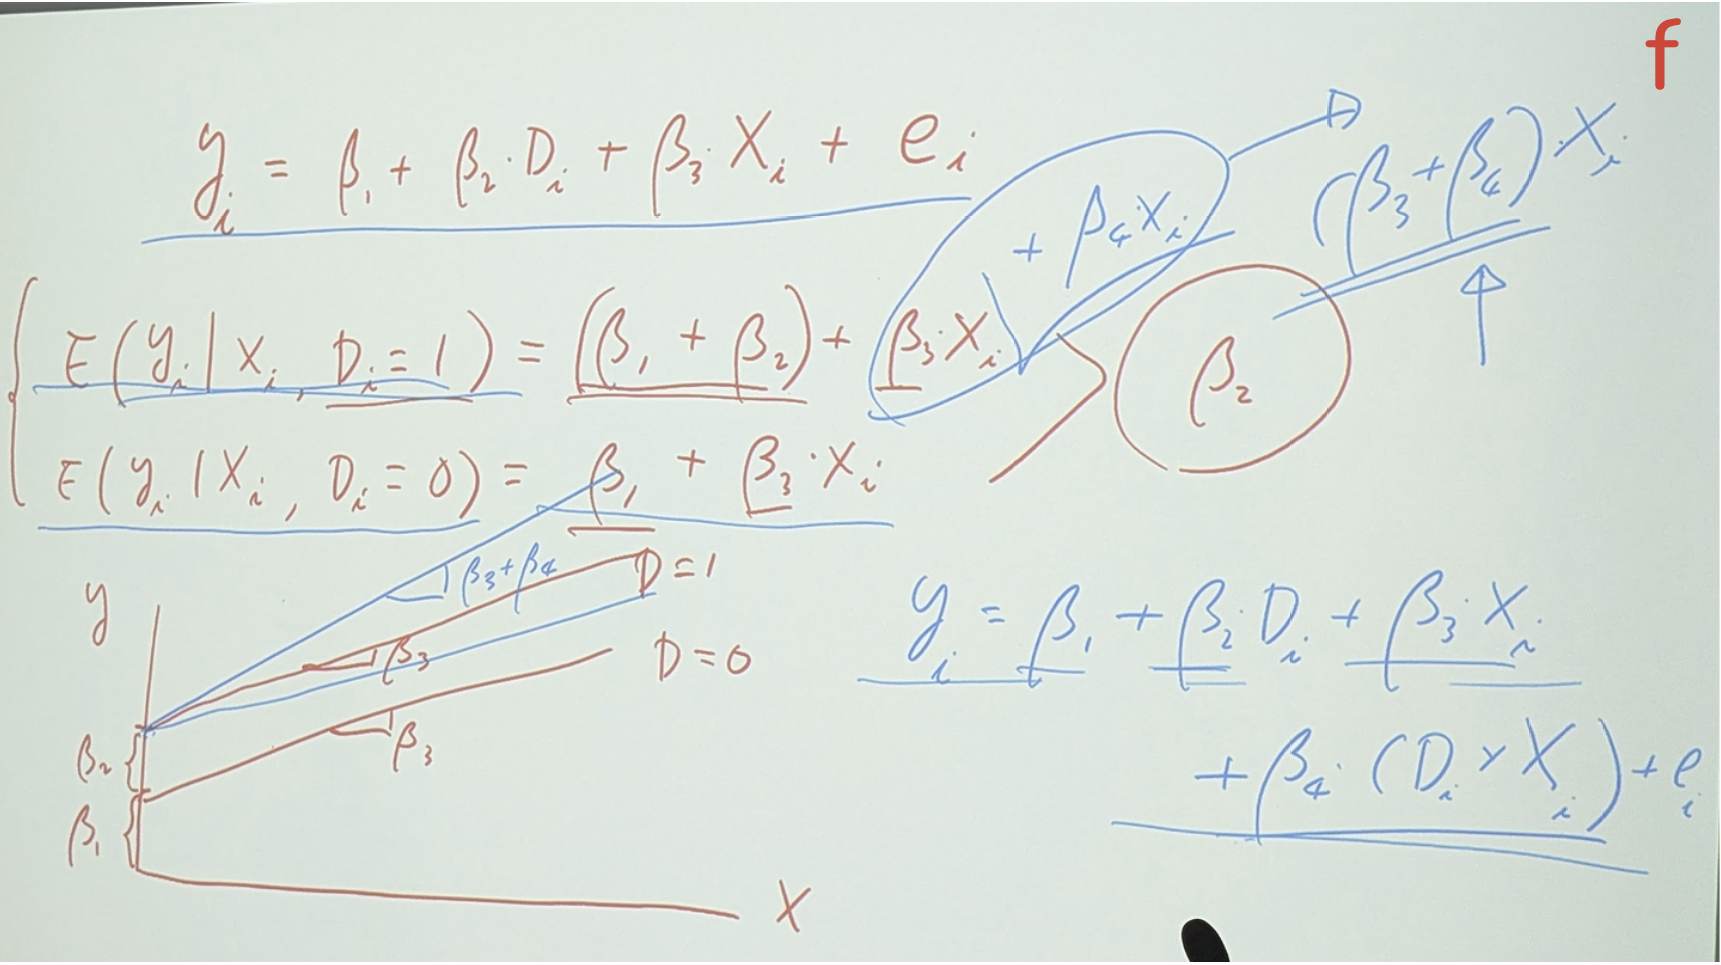 f
y_i = β_1 + β_2·D_i + β_3·X_i + e_i
+ β_4·X_i
(β_3+β_4)·X_i
E(y_i | X_i, D_i = 1) = (β_1 + β_2) + β_3·X_i
β_2
E(y_i | X_i, D_i = 0) = β_1 + β_3·X_i
β_3+β_4
D=1
y
β_3
D=0
β_3
β_2
β_1
X
y_i = β_1 + β_2·D_i + β_3·X_i
+ β_4·(D_i × X_i) + e_i